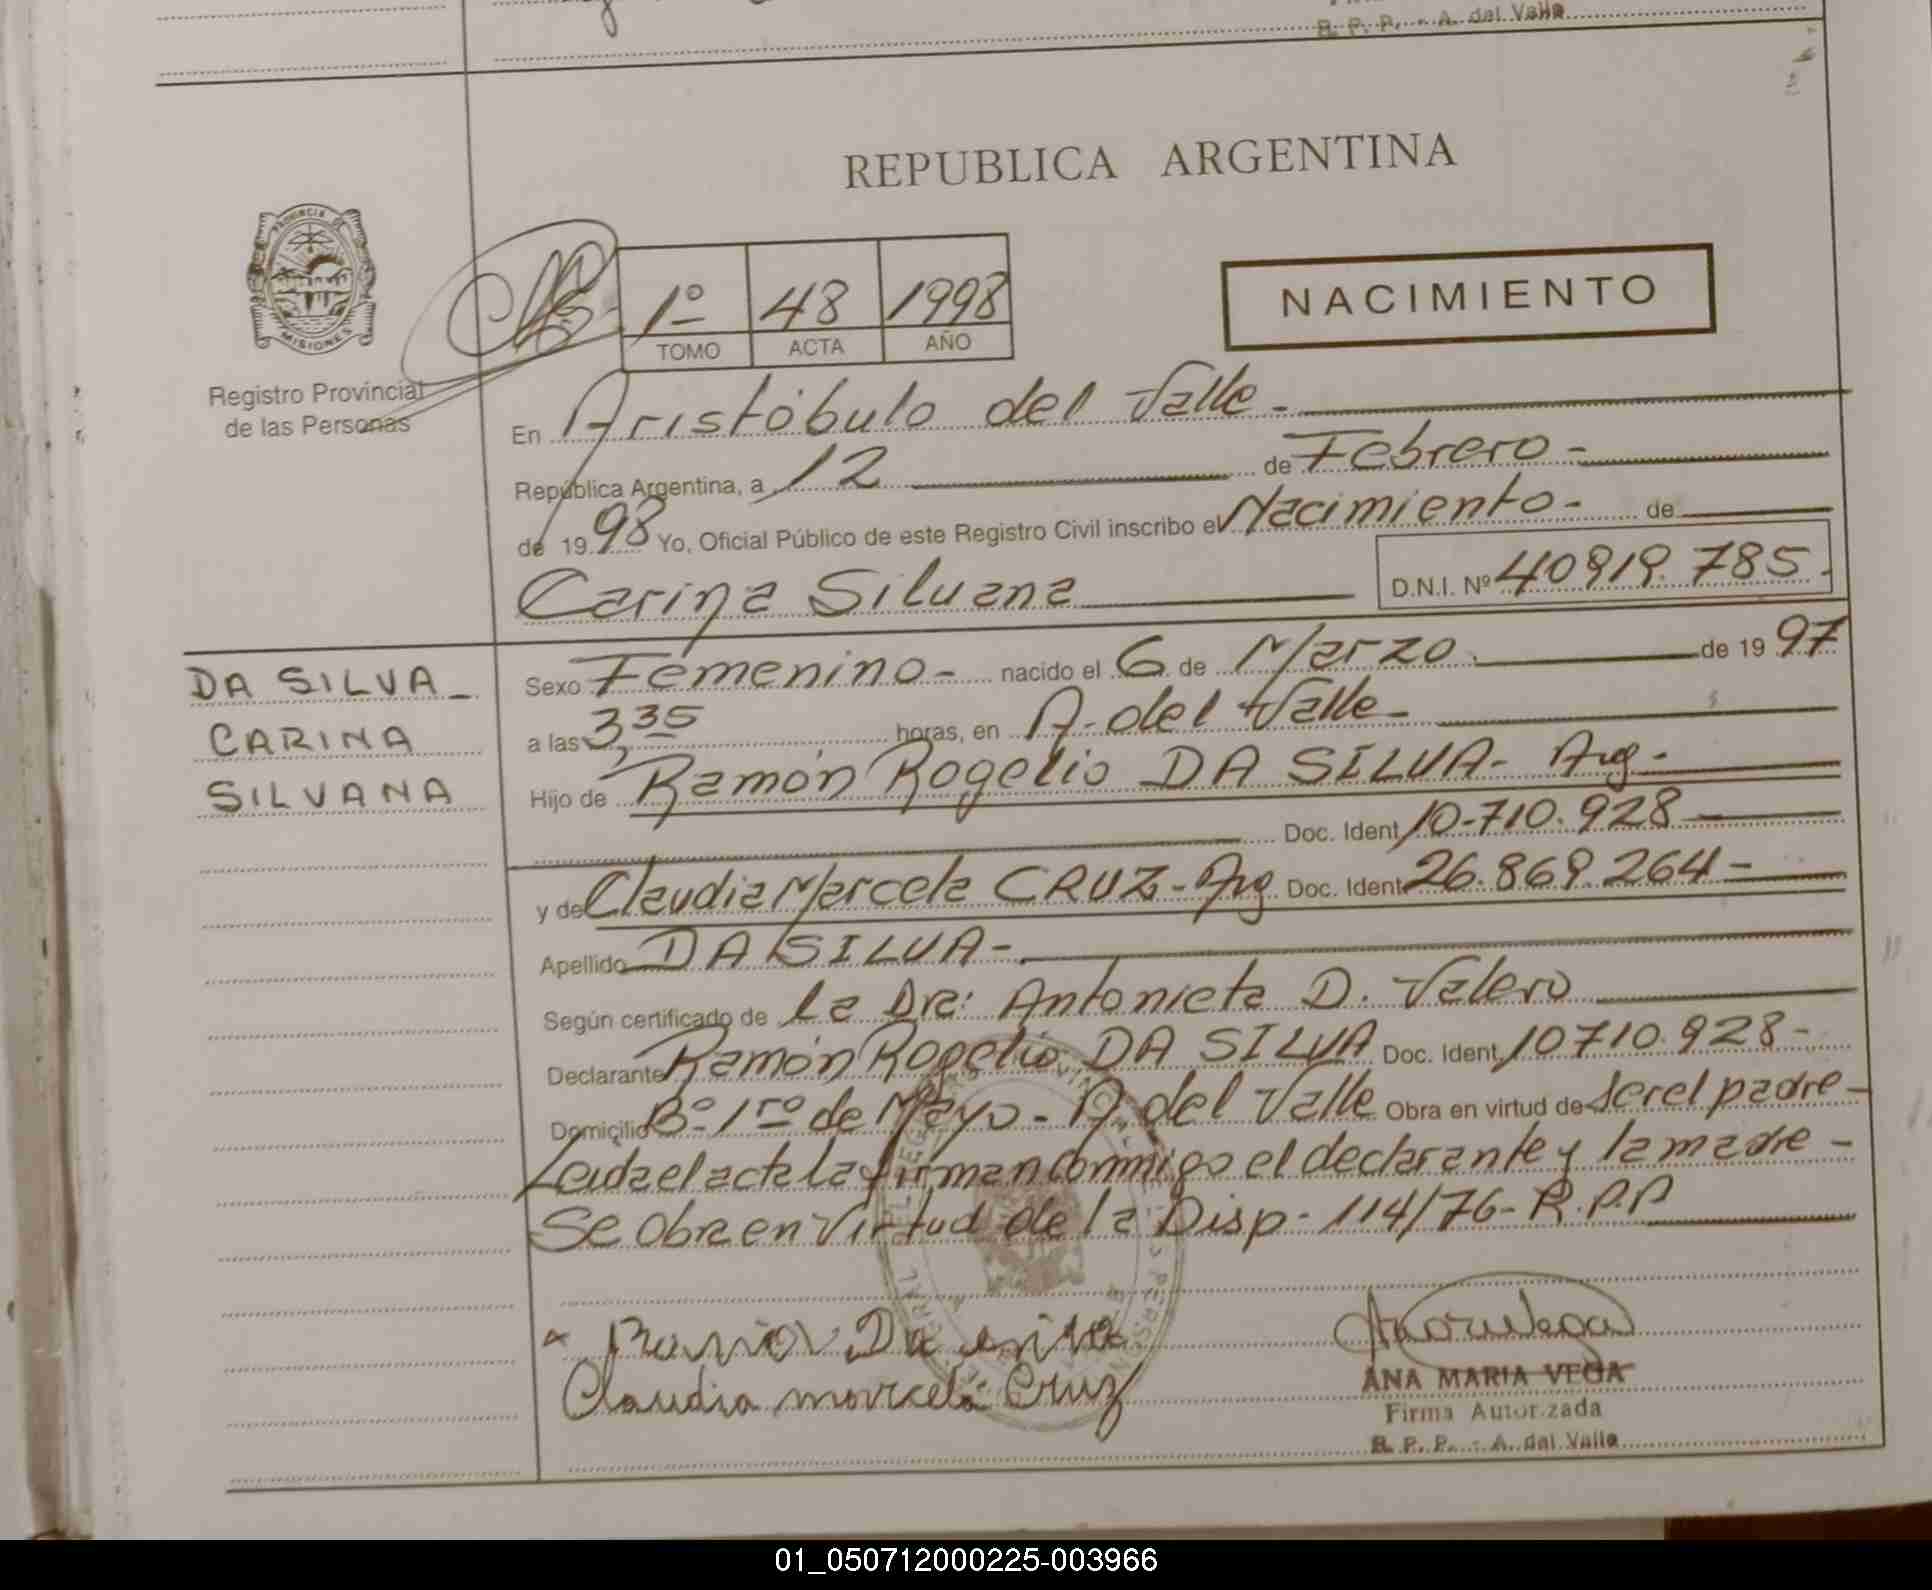 R. P. P. - A. del Valle
REPUBLICA ARGENTINA
PROVINCIA DE
MISIONES
Registro Provincial
de las Personas
1º 48 1998
TOMO ACTA AÑO
NACIMIENTO
En Aristóbulo del Valle -
República Argentina, a 12 de Febrero -
de 1998 Yo, Oficial Público de este Registro Civil inscribo el Nacimiento - de
Carina Silvana D.N.I. Nº 40919.785.
DA SILVA -
CARINA
SILVANA
Sexo Femenino - nacido el 6 de Marzo. de 1997
a las 3,35 horas, en A. del Valle -
Hijo de Ramón Rogelio DA SILVA - Arg -
Doc. Ident 10.710.928
y de Claudia Marcela CRUZ - Arg Doc. Ident 26.869.264 -
Apellido DA SILVA -
Según certificado de La Dra: Antonieta D. Valero
Declarante Ramón Rogelio DA SILVA Doc. Ident 10710.928 -
Domicilio Bº 1ro de Mayo - A. del Valle Obra en virtud de ser el padre -
Leida el acta la firman conmigo el declarante y la madre -
Se obra en virtud de la Disp - 114/76 - R.P.P
Claudia marcela Cruz
ANA MARIA VEGA
Firma Autorizada
R. P. P. - A. del Valle
01_050712000225-003966